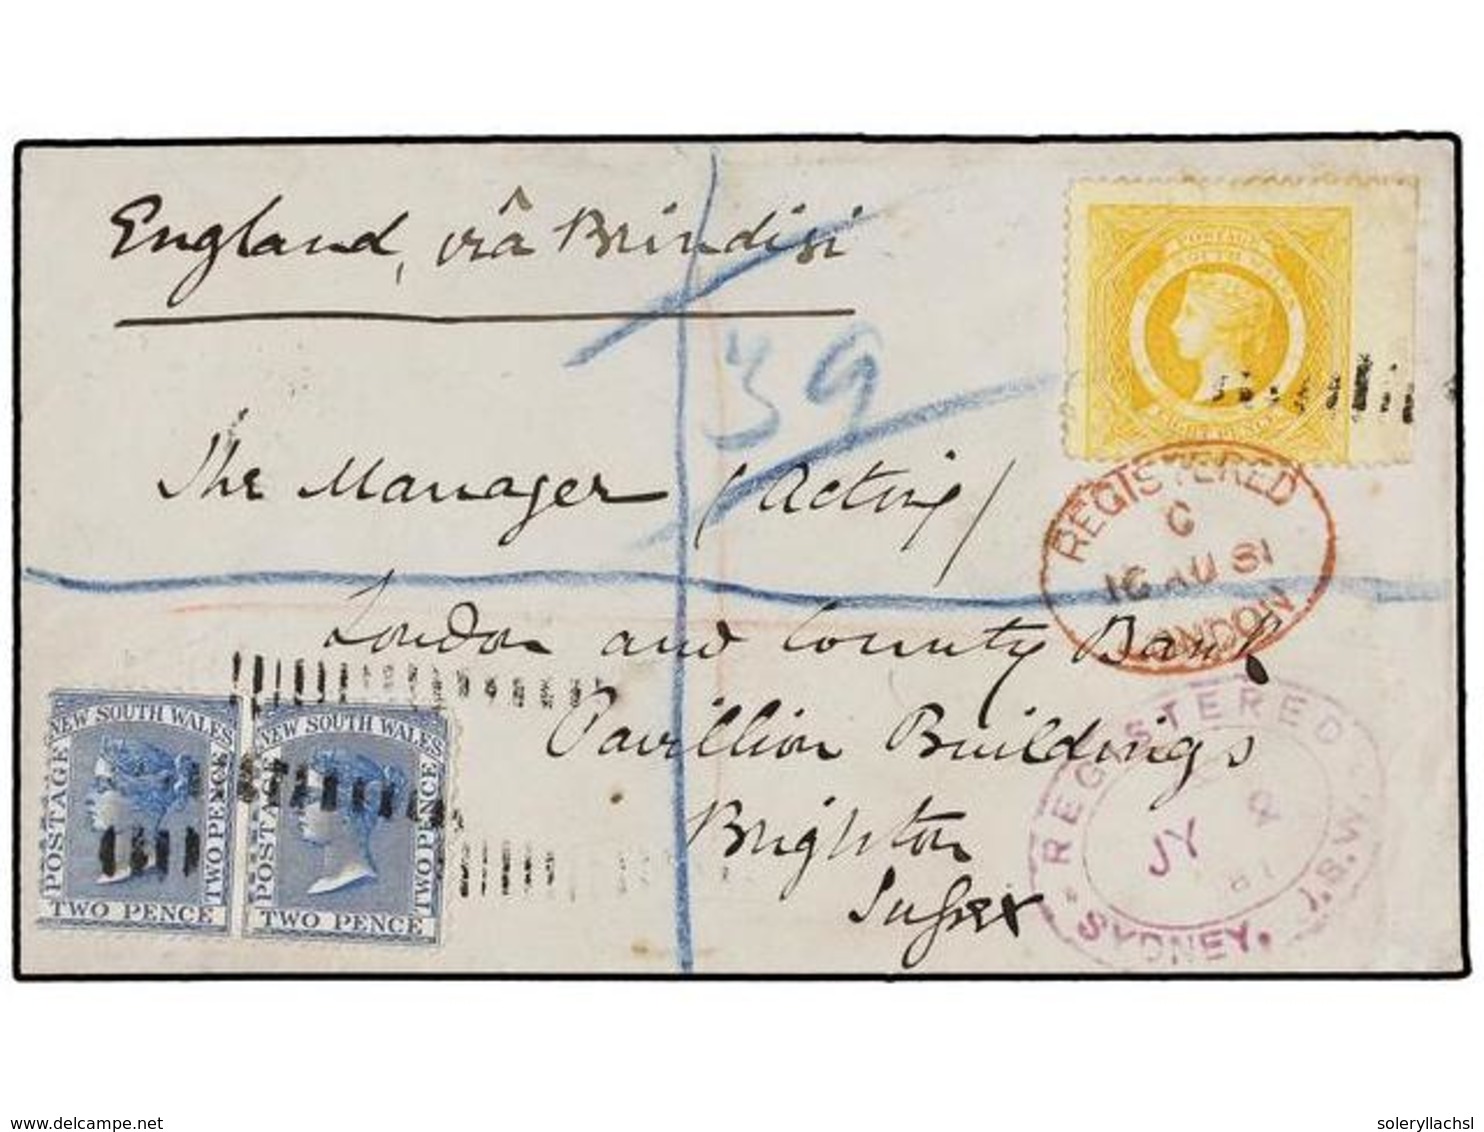 England, viâ Brindisi
39
POSTAGE
SOUTH WALES
EIGHT PENCE
The Manager (Acting)
REGISTERED
C
16 AU 81
LONDON
London and County Bank
Pavillion Buildings
Brighton
Sussex
NEW SOUTH WALES
POSTAGE
TWO PENCE
TWO PENCE
NEW SOUTH WALES
POSTAGE
TWO PENCE
TWO PENCE
REGISTERED
JY
81
SYDNEY. N.S.W.
delcampe.net
soleryllachsl